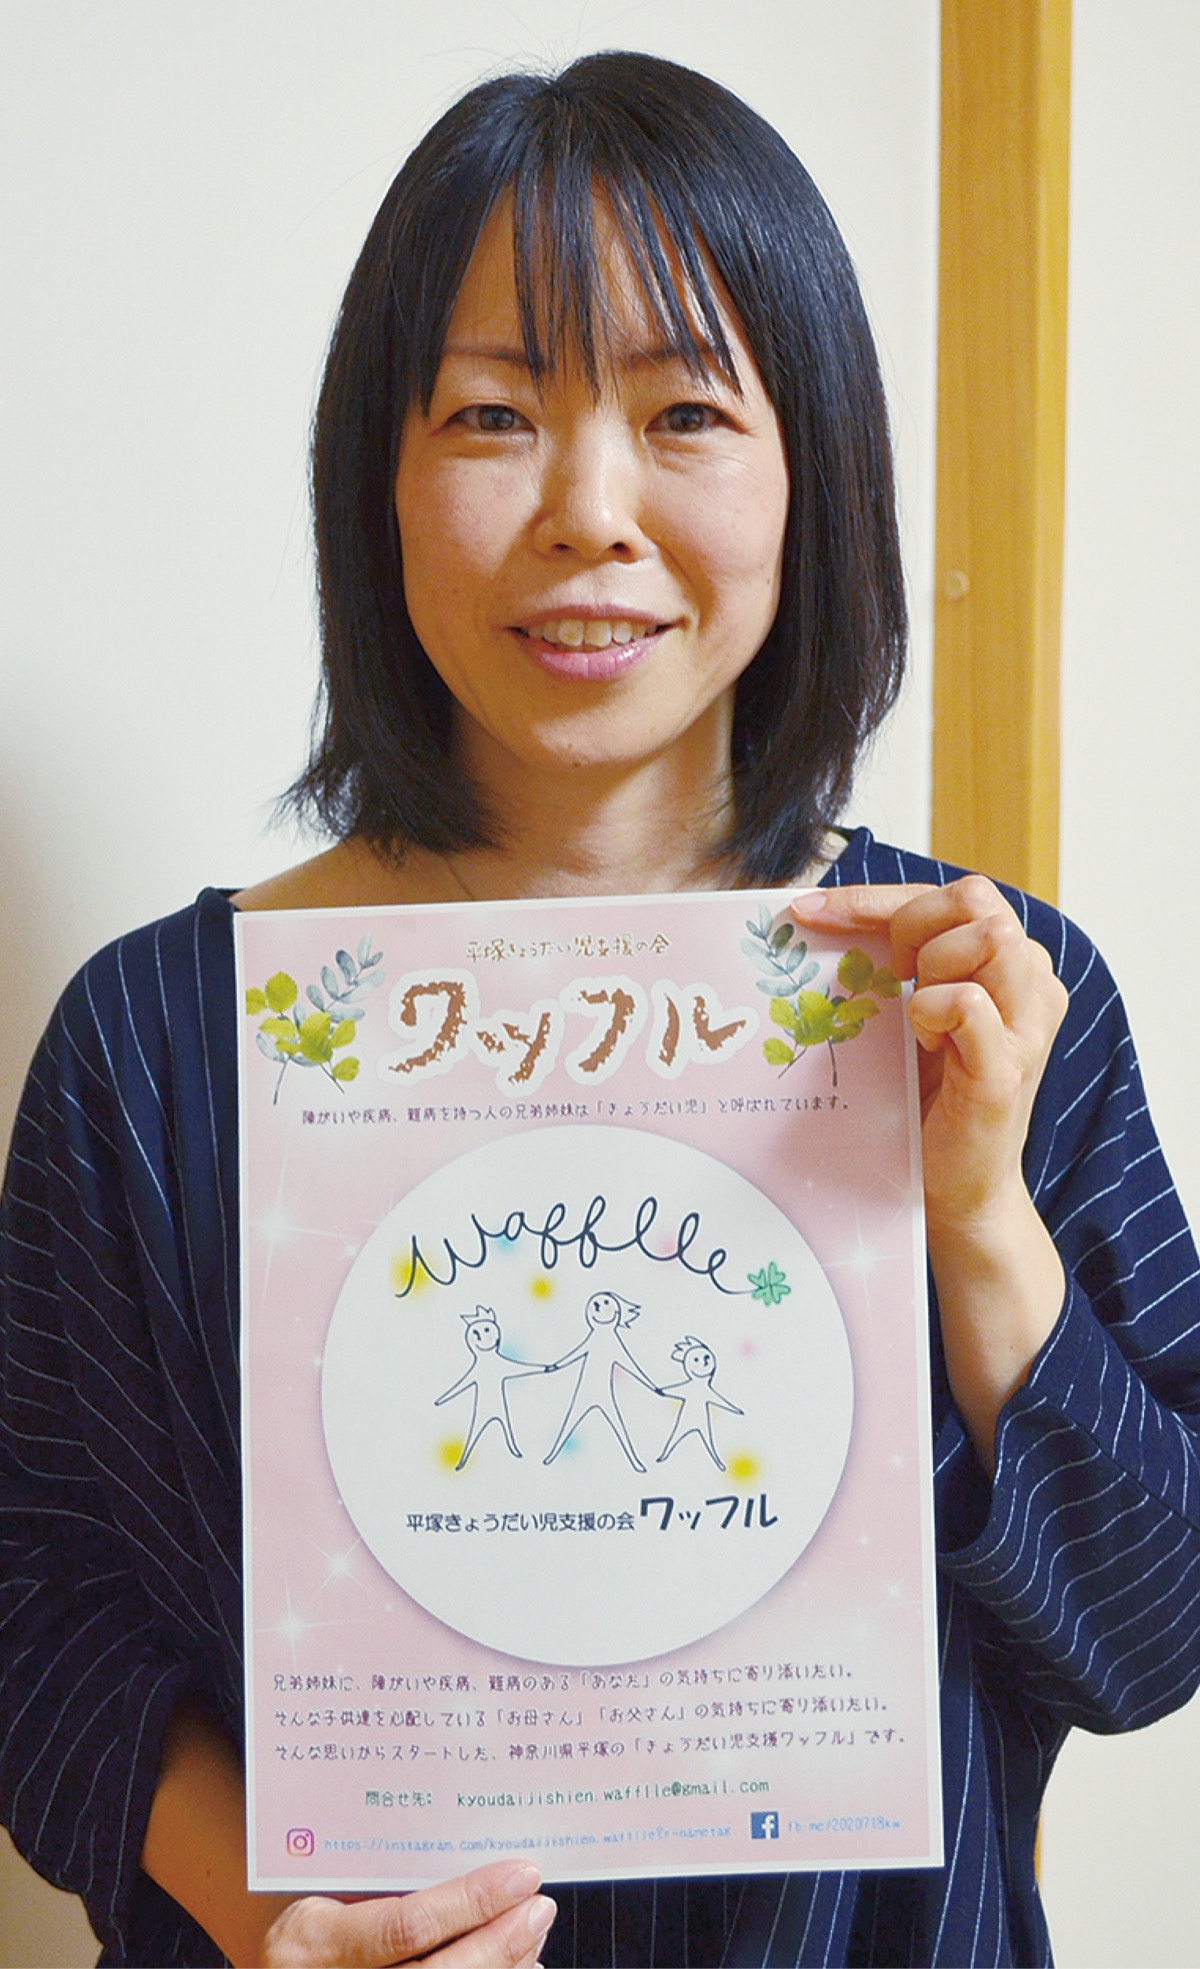 平塚きょうだい児支援の会
ワッフル
障がいや疾病、難病を持つ人の兄弟姉妹は「きょうだい児」と呼ばれています。
wafflle
平塚きょうだい児支援の会 ワッフル
兄弟姉妹に、障がいや疾病、難病のある「あなた」の気持ちに寄り添いたい。
そんな子供達を心配している「お母さん」「お父さん」の気持ちに寄り添いたい。
そんな思いからスタートした、神奈川県平塚の「きょうだい児支援ワッフル」です。
問合せ先: kyoudaijishien.wafflle@gmail.com
https://instagram.com/kyoudaijishien.wafflle?r=nametag fb.me/2020718kw